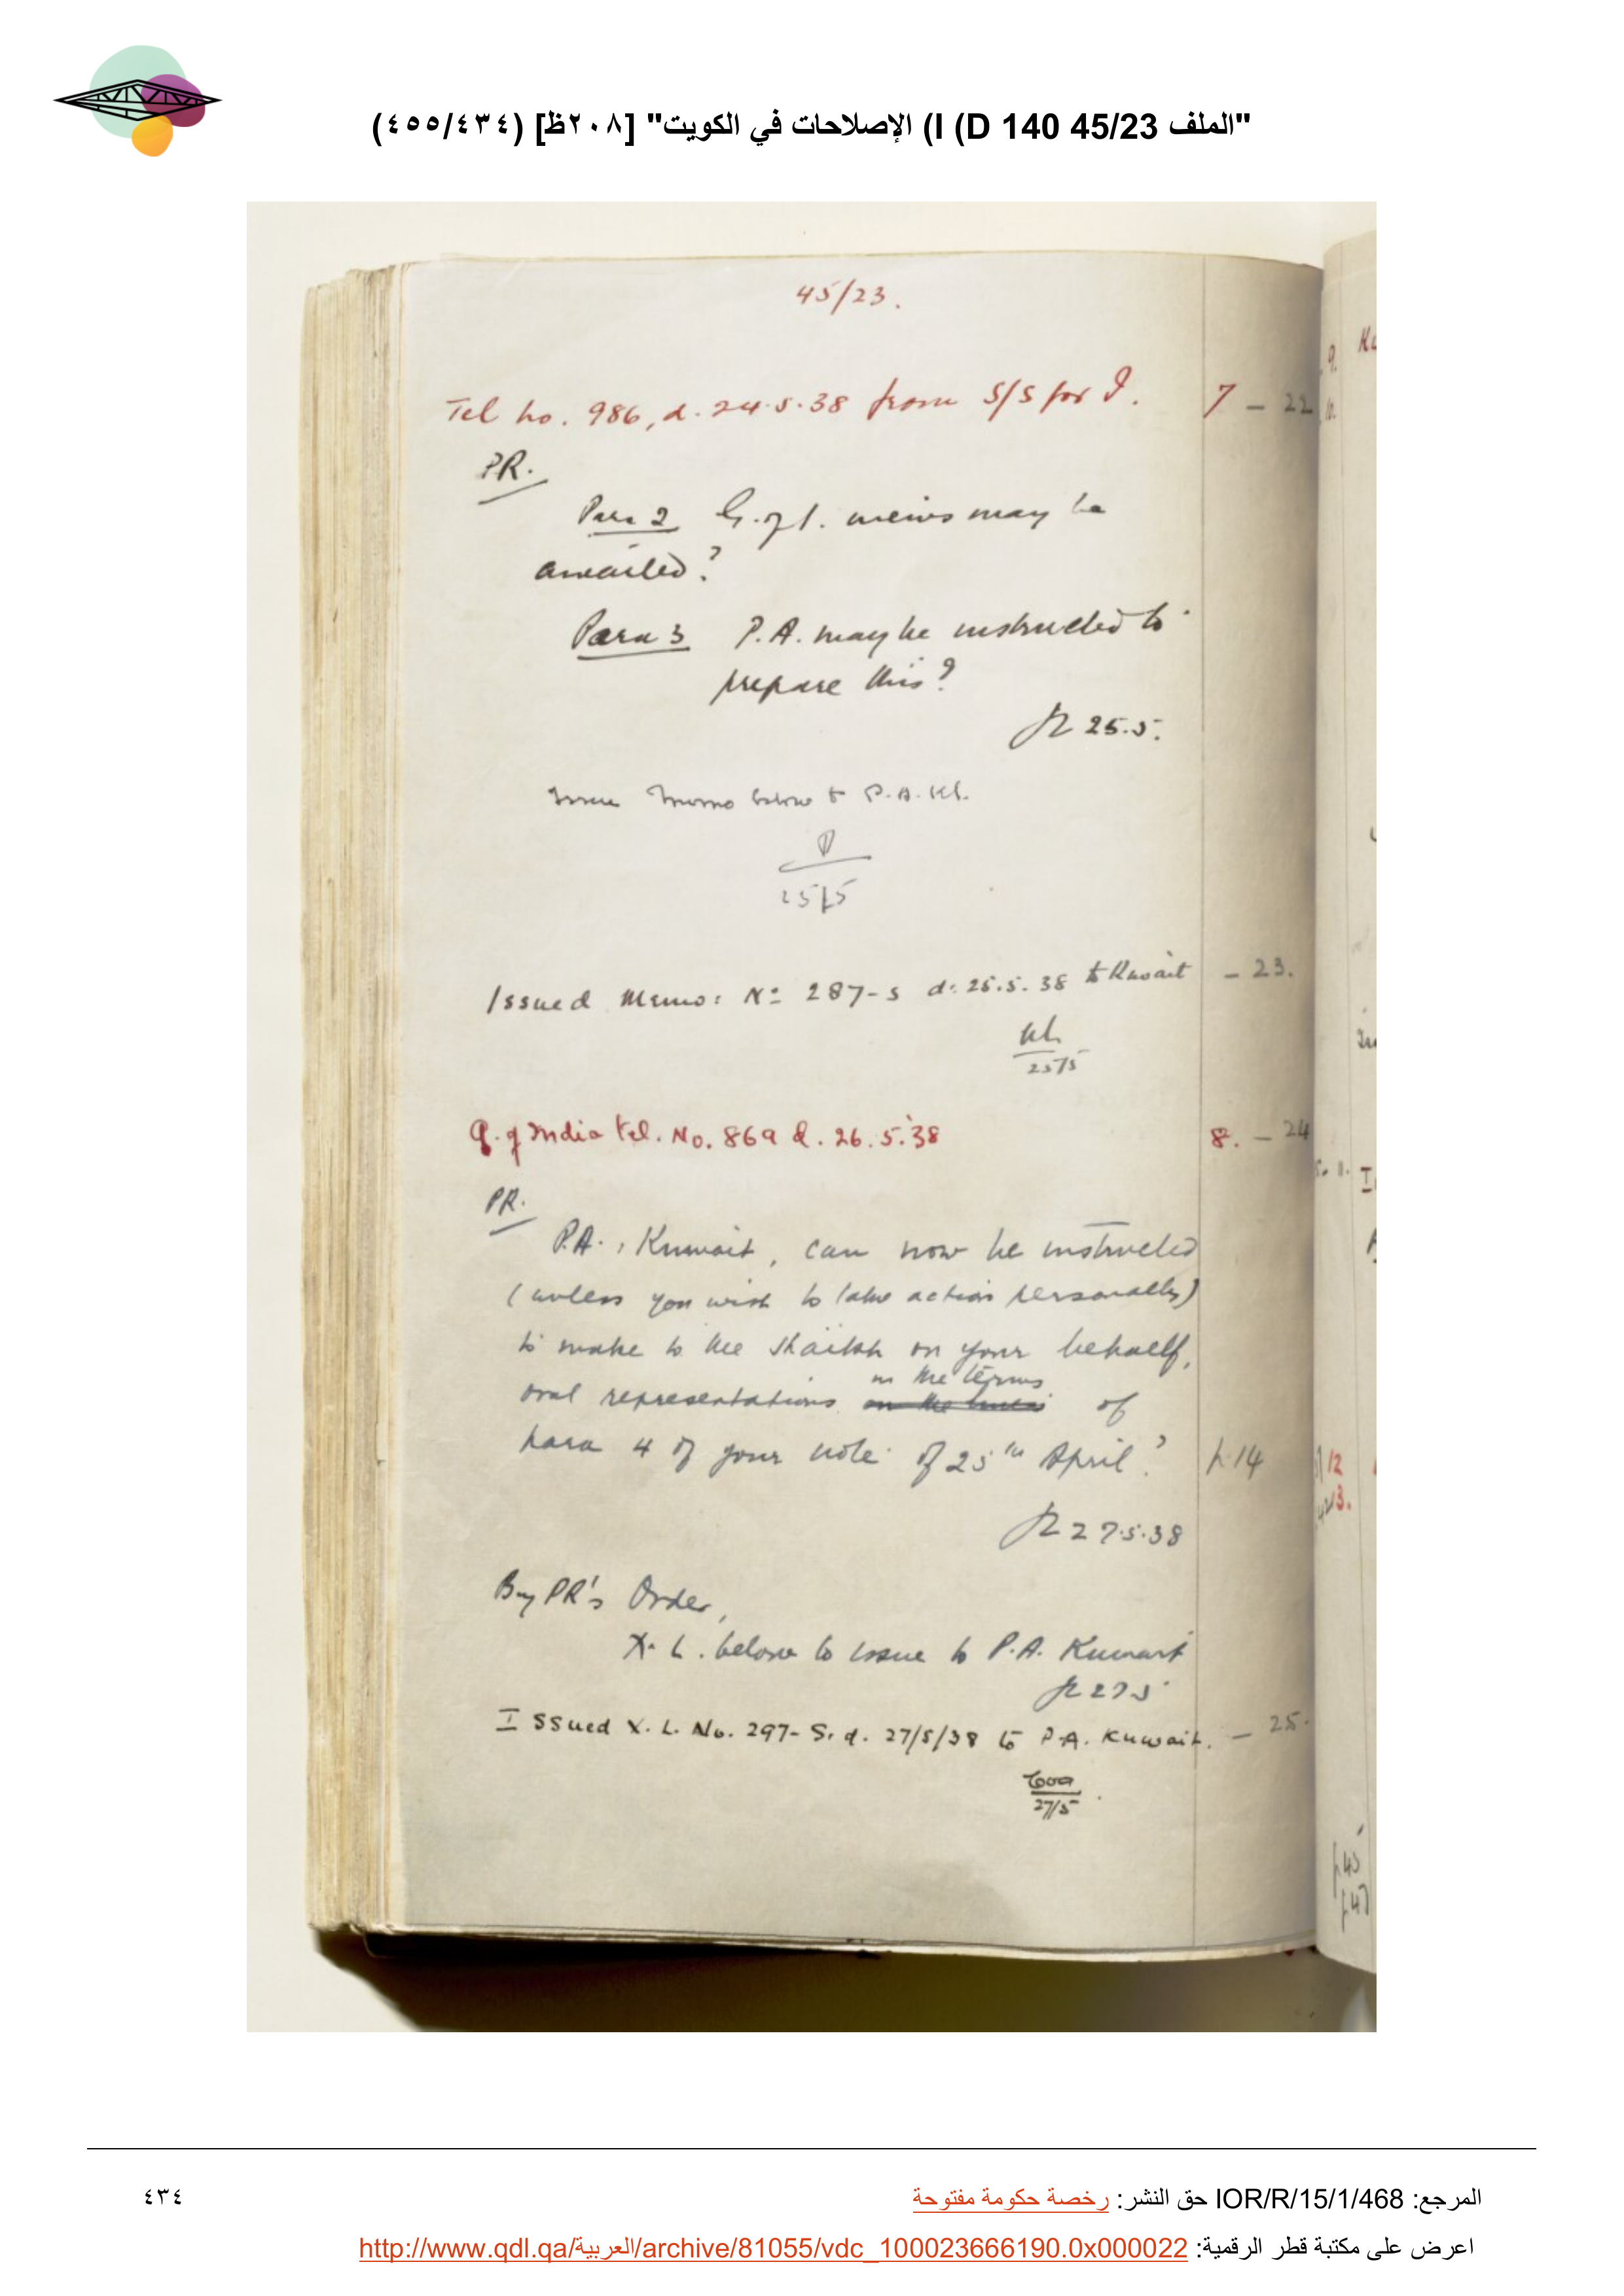 "الملف 45/23 I (D 140) الإصلاحات في الكويت" [٢٠٨ظ] (٤٥٥/٤٣٤)
45/23.
Tel no. 986, d. 24.5.38 from S/S for I. 7 - 22
PR.
Para 2 G. of I. views may be
awaited?
Para 3 P.A. may be instructed to
prepare this?
25.5.
Issue memo below to P.A. Kt.
25/5
Issued Memo: No 287-S d. 25.5.38 to Kuwait - 23.
25/5
G. of India tel. No. 869 d. 26.5.38 8. - 24
PR.
P.A., Kuwait, can now be instructed
(unless you wish to take action personally)
to make to the Shaikh on your behalf,
in the terms
oral representations on the lines of
para 4 of your note of 25th April? p. 14
27.5.38
By PR's Order,
X.L. below to issue to P.A. Kuwait
27.5
Issued X.L. No. 297-S. d. 27/5/38 to P.A. Kuwait. - 25.
27/5
المرجع: IOR/R/15/1/468 حق النشر: رخصة حكومة مفتوحة
٤٣٤
اعرض على مكتبة قطر الرقمية: http://www.qdl.qa/العربية/archive/81055/vdc_100023666190.0x000022